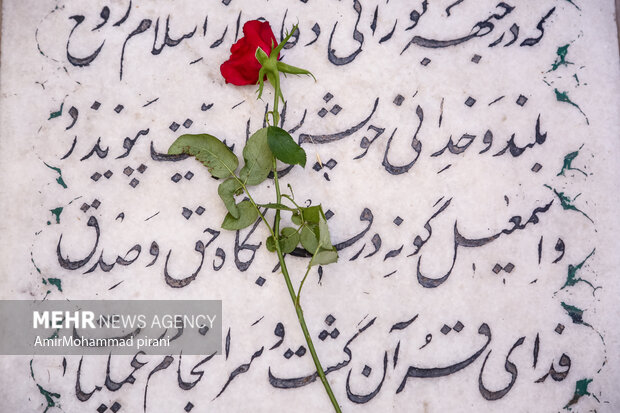 که در جبهه نورانی دفاع از اسلام روح
بلند وحدانی خویش پیوند زد
و اسمعیل گونه در قربانگاه حق و صدق
فدای قرآن گشت سرانجام
MEHR NEWS AGENCY
AmirMohammad pirani